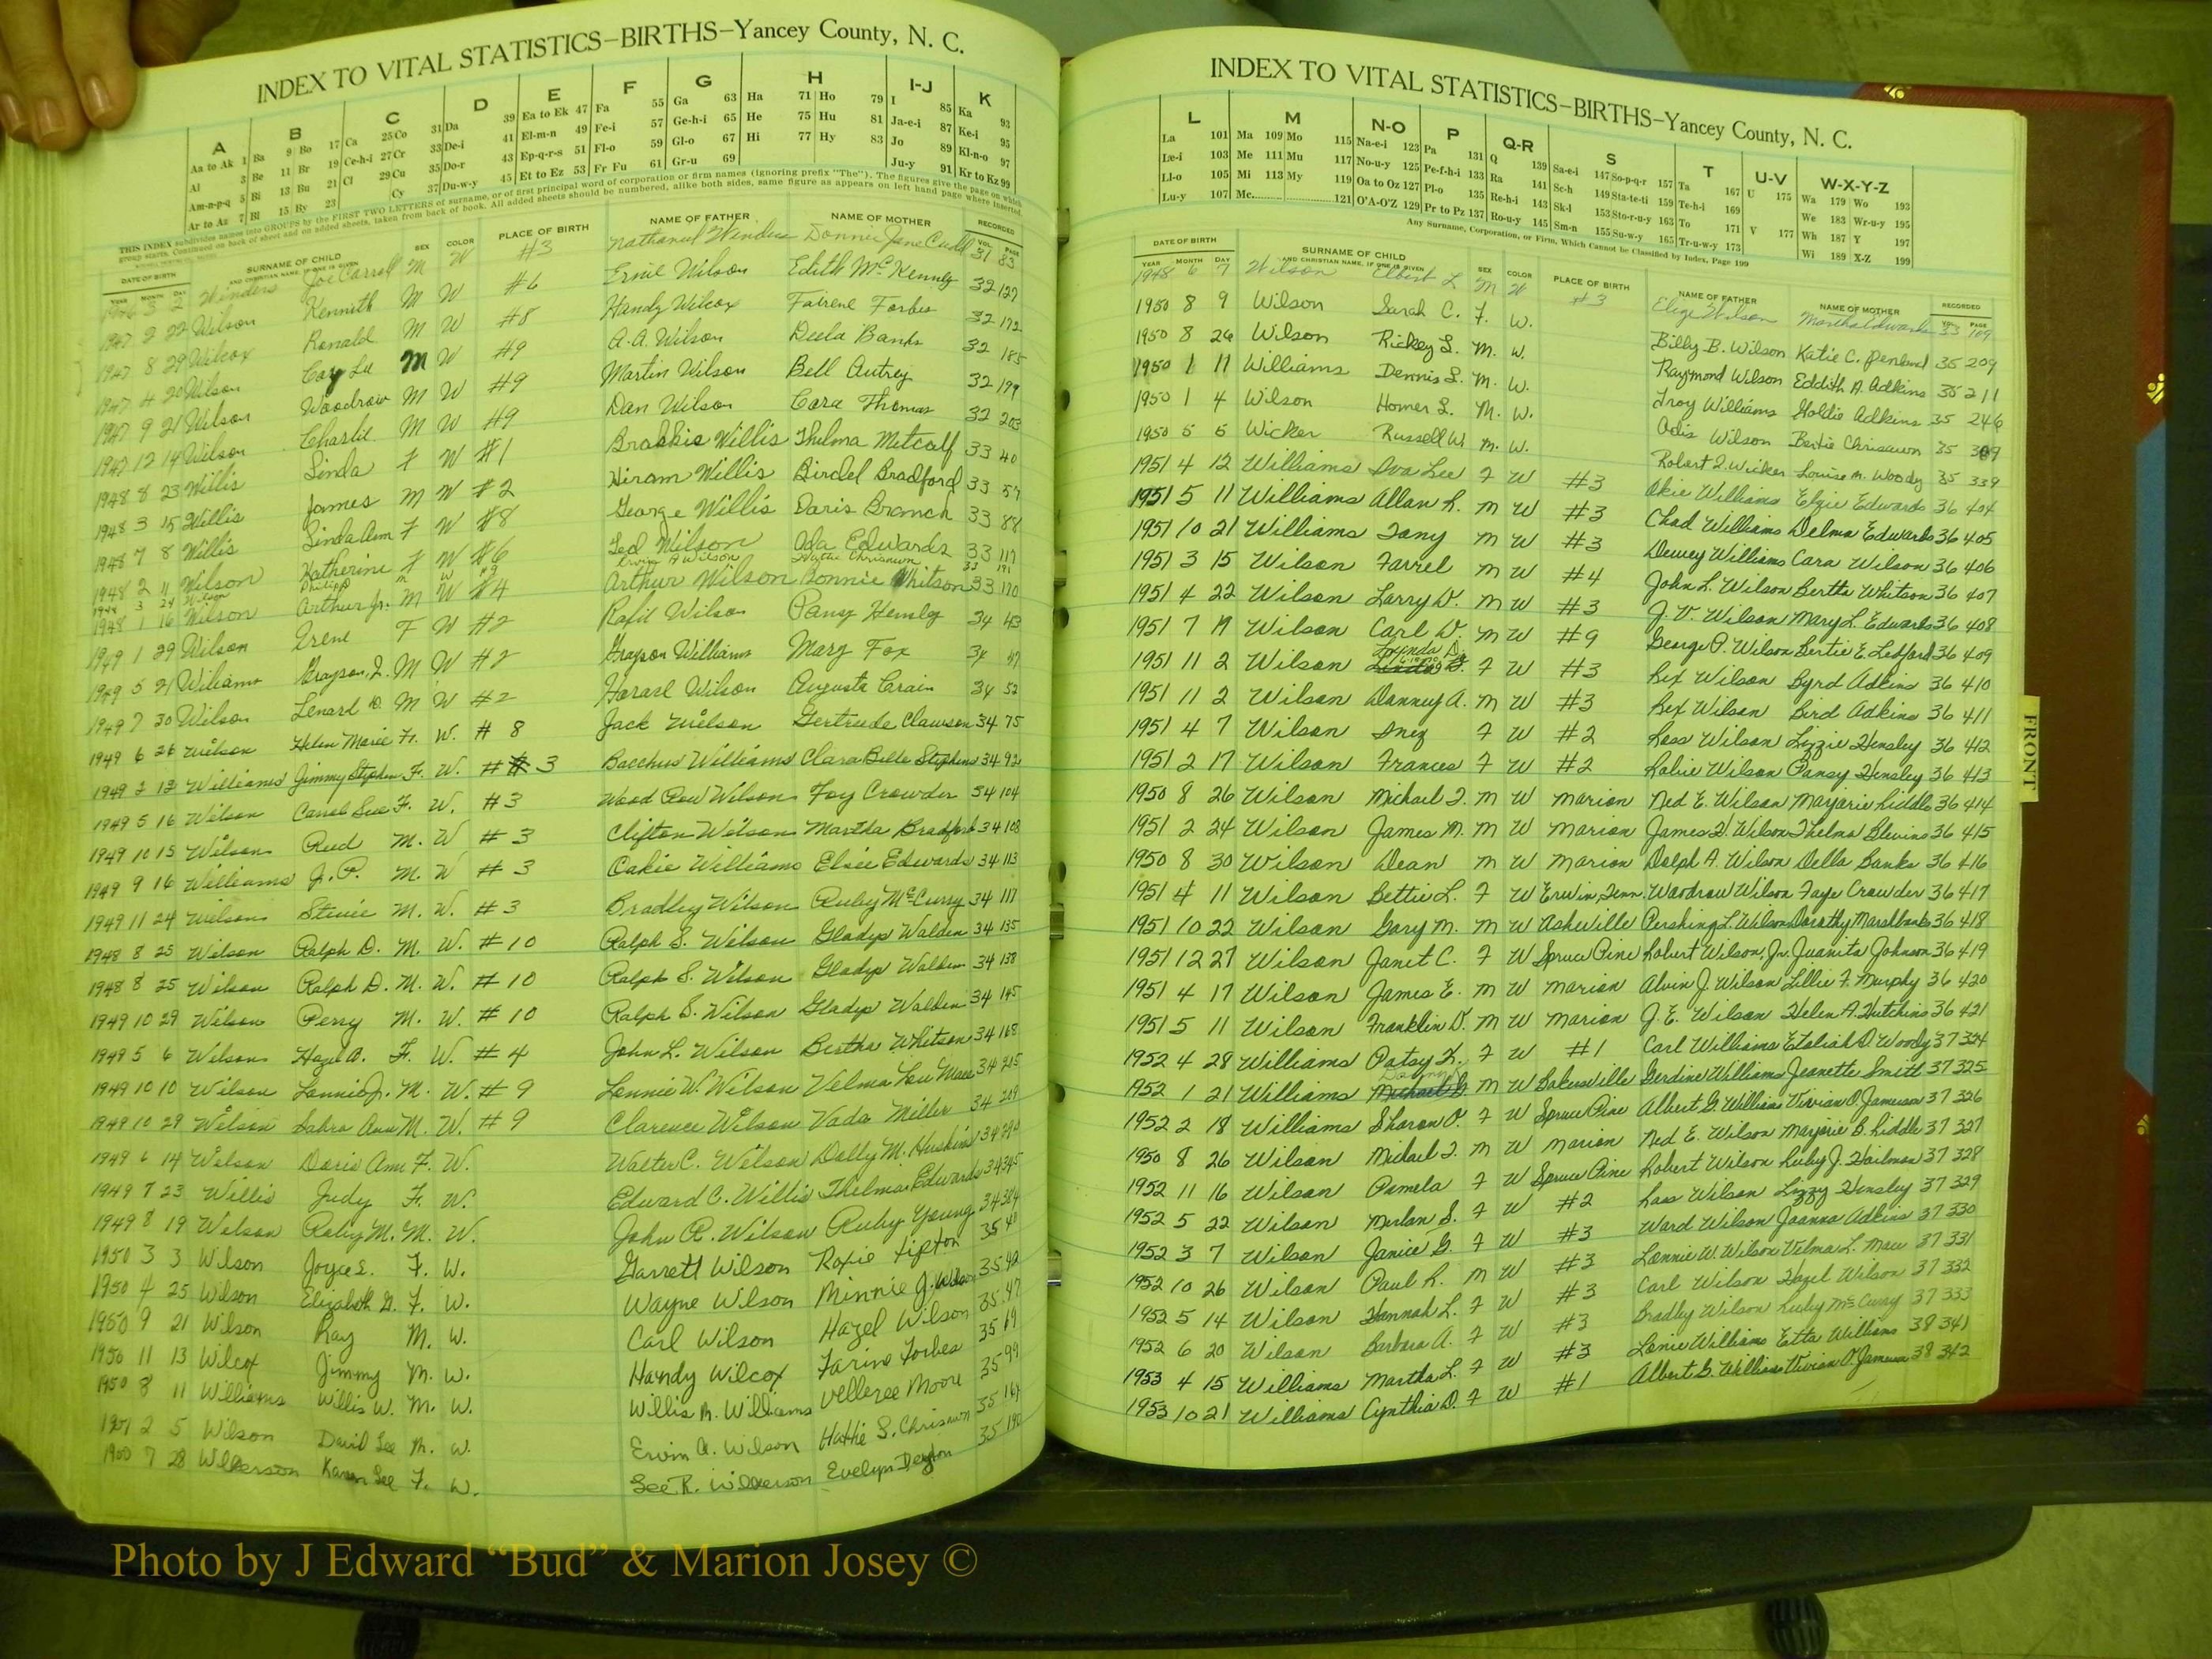 INDEX TO VITAL STATISTICS–BIRTHS–Yancey County, N. C.
A B C D E F G H I-J K
Aa to Ak 1 Ba 9 Bo 17 Ca 25 Co 31 Da 39 Ea to Ek 47 Fa 55 Ga 63 Ha 71 Ho 79 I 85 Ka 93
Al 3 Be 11 Br 19 Ce-h-i 27 Cr 33 De-i 41 El-m-n 49 Fe-i 57 Ge-h-i 65 He 75 Hu 81 Ja-e-i 87 Ke-i 95
Am-n-p-q 5 Bi 13 Bu 21 Cl 29 Cu 35 Do-r 43 Ep-q-r-s 51 Fl-o 59 Gl-o 67 Hi 77 Hy 83 Jo 89 Kl-n-o 97
Ar to Az 7 Bl 15 By 23 Cy 37 Du-w-y 45 Et to Ez 53 Fr Fu 61 Gr-u 69 Ju-y 91 Kr to Kz 99
THIS INDEX subdivides names into GROUPS by the FIRST TWO LETTERS of surname, or of first principal word of corporation or firm names (ignoring prefix "The"). The figures give the page on which
group starts. Continued on back of sheet and on added sheets, taken from back of book. All added sheets should be numbered, alike both sides, same figure as appears on left hand page where inserted.
DATE OF BIRTH SURNAME OF CHILD AND CHRISTIAN NAME, IF ONE IS GIVEN SEX COLOR PLACE OF BIRTH NAME OF FATHER NAME OF MOTHER RECORDED
YEAR MONTH DAY VOL. PAGE
1946 3 2 Winders Joe Carroll M W #3 Nathaniel Winders Donnie Jane 31 83
1947 2 22 Wilson Kenneth M W #6 Ernie Wilson Edith McKenney 32 127
1947 8 29 Wilcox Ronald M W #8 Handy Wilcox Fairene Forbes 32 172
1947 4 20 Wilson M W #9 A.A. Wilson Deela Banks 32 185
1947 9 21 Wilson Woodrow M W #9 Martin Wilson Bell Autrey 32 199
1947 12 14 Wilson Charlie M W #9 Dan Wilson Cora Thomas 32 203
1948 8 23 Willis Linda F W #1 Willis Thelma Metcalf 33 40
1948 3 15 Willis James M W #2 Hiram Willis Birdel Bradford 33 57
1948 7 8 Willis Linda Ann F W #8 George Willis Doris Branch 33 88
1948 2 11 Wilson Katherine F W #6 Ted Wilson Oda Edwards 33 117
1948 3 24 Wilson Philip M W #9 Ervin A Wilson Chrisawn 33 191
1948 1 16 Wilson Arthur Jr. M W #4 Arthur Wilson Bonnie Whitson 33 170
1949 1 29 Wilson Irene F W #2 Wilson Pansy Hensley 34 43
1949 5 21 Williams Grayson, J. M W #2 Grayson Williams Mary Fox 34 47
1949 7 30 Wilson Lenard D. M W #2 Wilson Augusta Crain 34 52
1949 6 26 Wilson Helen Marie F. W. # 8 Jack Wilson Gertrude Clawson 34 75
1949 2 12 Williams Jimmy Stephen F. W. # 3 Bacchus Williams Clara Belle Stephens 34 92
1949 5 16 Wilson Carol Sue F. W. #3 Wood Row Wilson Foy Crowder 34 104
1949 10 15 Wilson Reed M. W # 3 Clifton Wilson Martha Bradford 34 108
1949 9 16 Williams J.P. M. W # 3 Oakie Williams Elsie Edwards 34 113
1949 11 24 Wilson Stevie M. W. # 3 Bradley Wilson Ruby McCurry 34 117
1948 8 25 Wilson Ralph D. M. W. # 10 Ralph S. Wilson Gladys Walden 34 135
1948 8 25 Wilson Ralph D. M. W. # 10 Ralph S. Wilson Gladys Walden 34 138
1949 10 29 Wilson Perry M. W. # 10 Ralph S. Wilson Gladys Walden 34 145
1949 5 6 Wilson Hazel A. F. W. # 4 John L. Wilson Bertha Whitson 34 168
1949 10 10 Wilson Lonnie Jr. M. W. # 9 Lonnie W. Wilson Velma Lou Mace 34 205
1949 10 29 Wilson Sabra Ann M. W. # 9 Clarence Wilson Vada Miller 34 209
1949 6 14 Wilson Doris Ann F. W. Walter C. Wilson Dolly M. Huskins 34
1949 7 23 Willis Judy F. W. Edward C. Willis Thelma Edwards 34 345
1949 8 19 Wilson Roby M. M. W. John R. Wilson Ruby Young 34 384
1950 3 3 Wilson Joyce L. F. W. Garrett Wilson Roxie Tipton 35 40
1950 4 25 Wilson Elizabeth G. F. W. Wayne Wilson Minnie J. Wilson 35 42
1950 9 21 Wilson Ray M. W. Carl Wilson Hazel Wilson 35 47
1950 11 13 Wilcox Jimmy M. W. Handy Wilcox Farine Forbes 35 69
1950 8 11 Williams Willis W. M. W. Willis M. Williams Velleree Moore 35 99
2 5 Wilson David Lee M. W. Ervin A. Wilson Hattie S. Chrisawn 35 164
7 28 Wilkerson Karen Lee F. W. Lee R. Wilkerson Evelyn Deyton 35 190
INDEX TO VITAL STATISTICS–BIRTHS–Yancey County, N. C.
L M N-O P Q-R S T U-V W-X-Y-Z
La 101 Ma 109 Mo 115 Na-e-i 123 Pa 131 Q 139 Sa-e-i 147 So-p-q-r 157 Ta 167 U 175 Wa 179 Wo 193
Le-i 103 Me 111 Mu 117 No-u-y 125 Pe-f-h-i 133 Ra 141 Sc-h 149 Sta-te-ti 159 Te-h-i 169 We 183 Wr-u-y 195
Ll-o 105 Mi 113 My 119 Oa to Oz 127 Pl-o 135 Re-h-i 143 Sk-l 153 Sto-r-u-y 163 To 171 V 177 Wh 187 Y 197
Lu-y 107 Mc 121 O'A-O'Z 129 Pr to Pz 137 Ro-u-y 145 Sm-n 155 Su-w-y 165 Tr-u-w-y 173 Wi 189 X-Z 199
Any Surname, Corporation, or Firm, Which Cannot be Classified by Index, Page 199
DATE OF BIRTH SURNAME OF CHILD AND CHRISTIAN NAME, IF ONE IS GIVEN SEX COLOR PLACE OF BIRTH NAME OF FATHER NAME OF MOTHER RECORDED
YEAR MONTH DAY VOL. PAGE
1948 6 7 Wilson Elbert L M W #3 Wilson Martha Edwards 33 109
1950 8 9 Wilson Sarah C. F. W. Billy B. Wilson Katie C. Penland 35 209
1950 8 26 Wilson Rickey L. M. W. Raymond Wilson Eddith A. Adkins 35 211
1950 1 11 Williams Dennis L. M. W. Troy Williams Goldie Adkins 35 246
1950 1 4 Wilson Homer L. M. W. Odis Wilson Bertie Chrisawn 35
1950 5 5 Wicker Russell W. M. W. Robert Wicker Louise M. Woody 35 339
1951 4 12 Williams Iva Lee F W #3 Okie Williams Elzie Edwards 36 404
1951 5 11 Williams Allan R. M W #3 Chad Williams Delma Edwards 36 405
1951 10 21 Williams Tony M W #3 Dewey Williams Cara Wilson 36 406
1951 3 15 Wilson Farrel M W #4 John L. Wilson Bertha Whitson 36 407
1951 4 22 Wilson Larry D. M W #3 J. V. Wilson Mary L. Edwards 36 408
1951 7 19 Wilson Carl D. M W #9 George P. Wilson Bertie E. Ledford 36 409
1951 11 2 Wilson Lynda F W #3 Rex Wilson Byrd Adkins 36 410
1951 11 2 Wilson Danney A. M W #3 Rex Wilson Bird Adkins 36 411
1951 4 7 Wilson Inez F W #2 Lass Wilson Lizzie Hensley 36 412
1951 2 17 Wilson Frances F W #2 Wilson Pansy Hensley 36 413
1950 8 26 Wilson Michael J. M W Marion Ned E. Wilson Marjorie Liddle 36 414
1951 2 24 Wilson James M. M W Marion James Wilson Thelma Blevins 36 415
1950 8 30 Wilson Dean M W Marion Dolph A. Wilson Della Banks 36 416
1951 4 11 Wilson Bettie L. F W Erwin, Tenn. Woodrow Wilson Faye Crowder 36 417
1951 10 22 Wilson Gary M. M W Asheville Pershing L. Wilson Dorothy Marshbanks 36 418
1951 12 27 Wilson Janet C. F W Spruce Pine Robert Wilson, Jr. Juanita Johnson 36 419
1951 4 17 Wilson James E. M W Marion Alvin J. Wilson Lillie F. Murphy 36 420
1951 5 11 Wilson Franklin D. M W Marion J. E. Wilson Helen A. Hutchins 36 421
1952 4 28 Williams Patsy K. F W #1 Carl Williams Woody 37 324
1952 1 21 Williams Michael M W Bakersville Gerdine Williams Jeanette Smith 37 325
1952 2 18 Williams Sharon F W Spruce Pine Albert G. Williams Vivian Jameson 37 326
1950 8 26 Wilson Michael J. M W Marion Ned E. Wilson Marjorie B. Liddle 37 327
1952 11 16 Wilson Pamela F W Spruce Pine Robert Wilson Ruby J. 37 328
1952 5 22 Wilson S. F W #2 Lass Wilson Lizzy Hensley 37 329
1952 3 7 Wilson Janice G. F W #3 Ward Wilson Joanna Adkins 37 330
1952 10 26 Wilson Paul R. M W #3 Lonnie W. Wilson Velma L. Mace 37 331
1952 5 14 Wilson Hannah L. F W #3 Carl Wilson Hazel Wilson 37 332
1952 6 20 Wilson Barbara A. F W #3 Bradley Wilson Ruby McCurry 37 333
1953 4 15 Williams Martha L. F W #3 Williams Etta Williams 38 341
1953 10 21 Williams Cynthia D. F W #1 Albert G. Williams Vivian Jameson 38 342
FRONT
Photo by J Edward “Bud” & Marion Josey ©